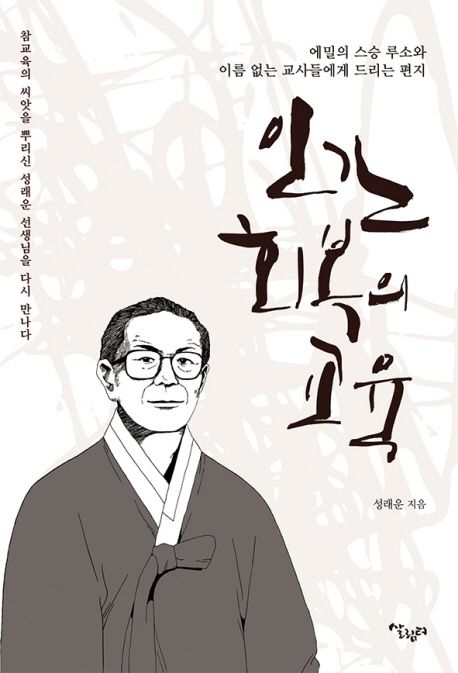 에밀의 스승 루소와
이름 없는 교사들에게 드리는 편지
인간
회복의
교육
참교육의 씨앗을 뿌리신 성래운 선생님을 다시 만나다
성래운 지음
살림터